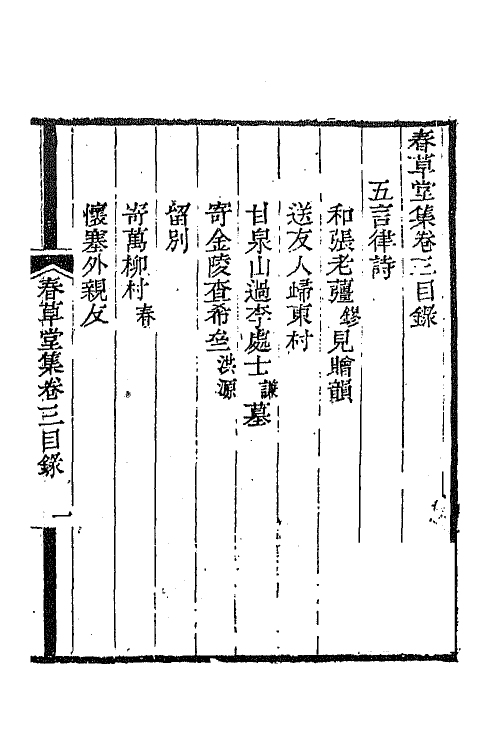 春草堂集卷三目錄
五言律詩
和張老薑鏐見贈韻
送友人歸東村
甘泉山過李處士謙墓
寄金陵查希垒洪源
留別
寄萬柳村春
懷塞外親友
春草堂集卷三目錄 一